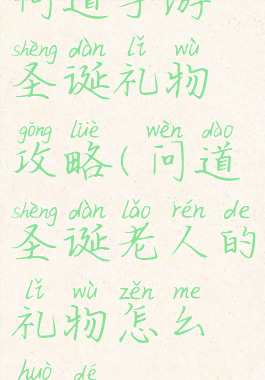 问道手游
shèng dàn lǐ wù
圣诞礼物
gōng lüè wèn dào
攻略(问道
shèng dàn lǎo rén de
圣诞老人的
lǐ wù zěn me
礼物怎么
huò dé